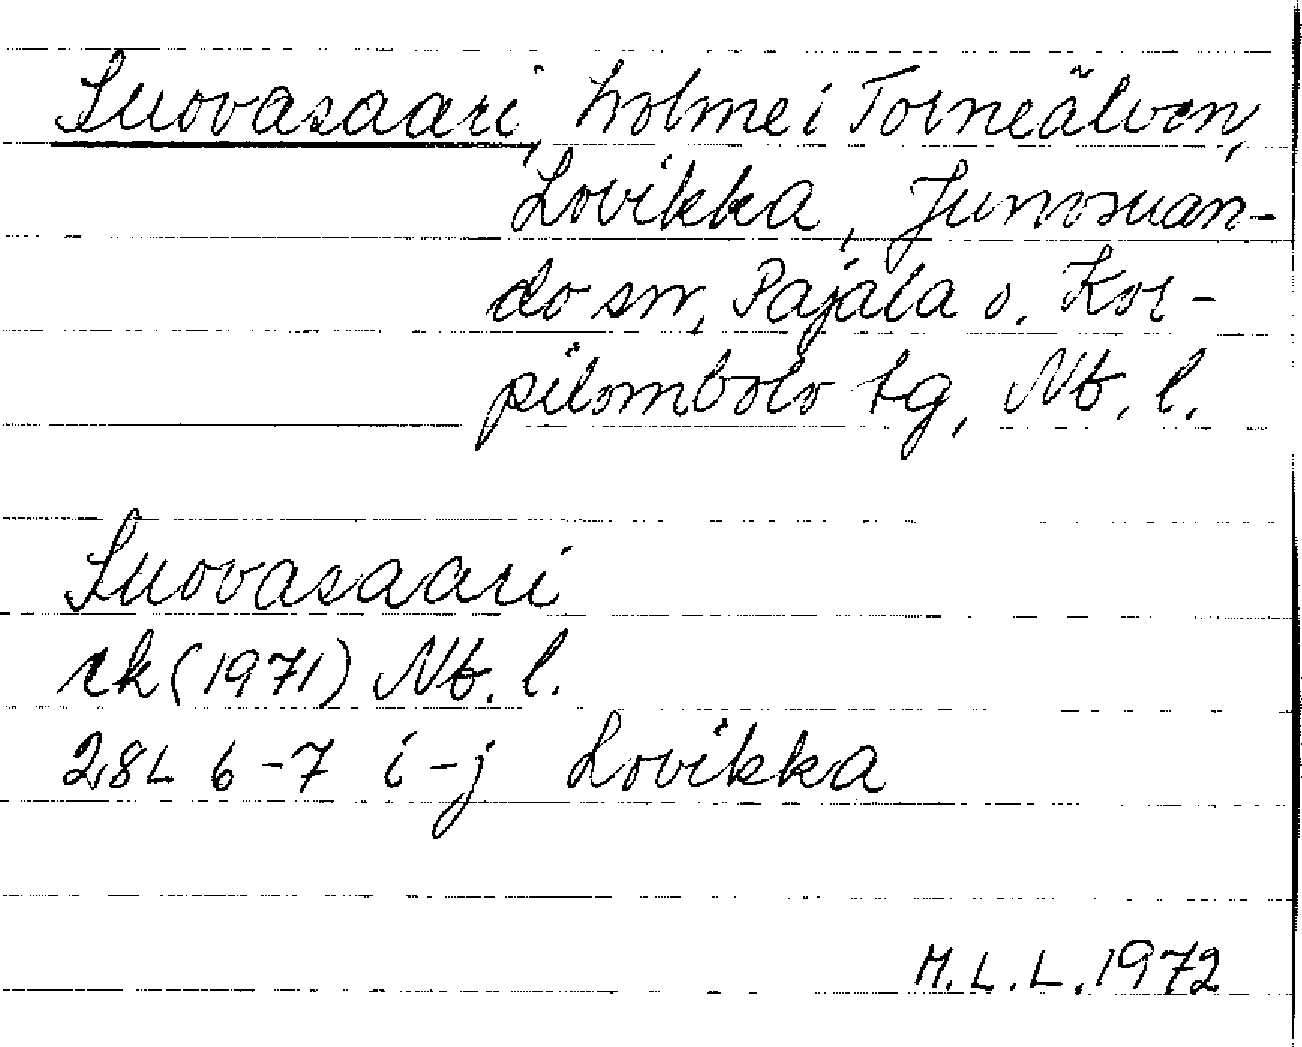 Suovasaari, holme i Torneälven,
Lovikka, Junosuan-
do sn, Pajala o. Kor-
pilombolo tg, Nb. l.
Suovasaari
rk (1971) Nb. l.
28L 6-7 i-j Lovikka
M.L.L. 1972